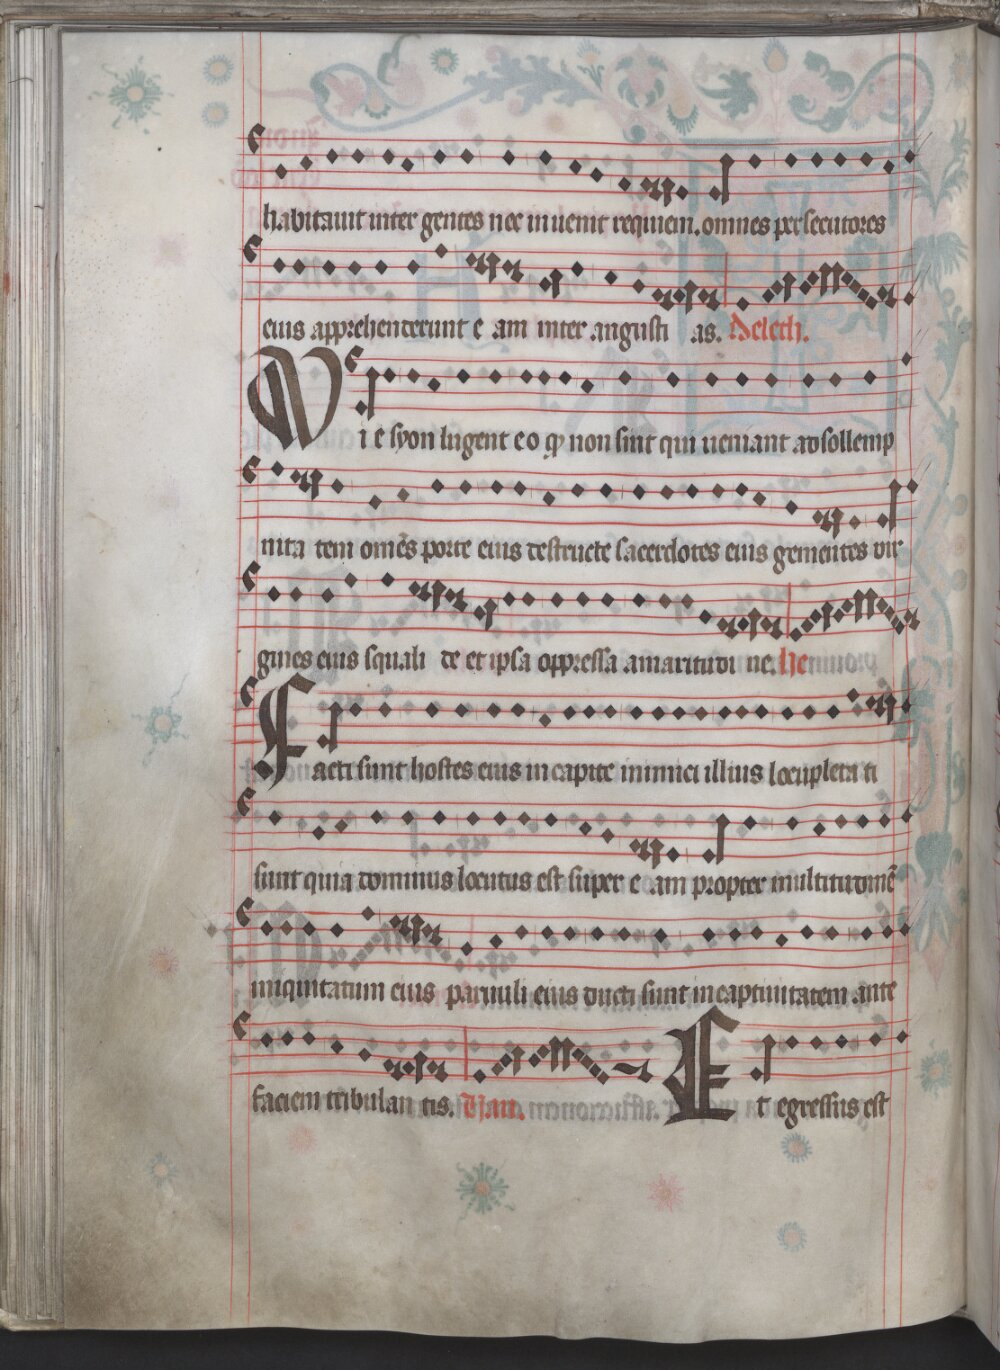 habitauit inter gentes nec inuenit requiem. omnes persecutores
eius apprehenderunt e am inter angusti as. Deleth.
Vi e syon lugent e o qp non sint qui ueniant ad sollemp
nita tem om̄es porte eius destructe sacerdotes eius gementes vir
gines eius squali de et ipsa oppressa amaritudi ne. he
Facti sunt hostes eius in capite inimici illius locupleta ti
sunt quia dominus locutus est super e am propter multitudinē
iniquitatum eius paruuli eius ducti sunt in captiuitatem ante
faciem tribulan tis. Vau. Et egressus est